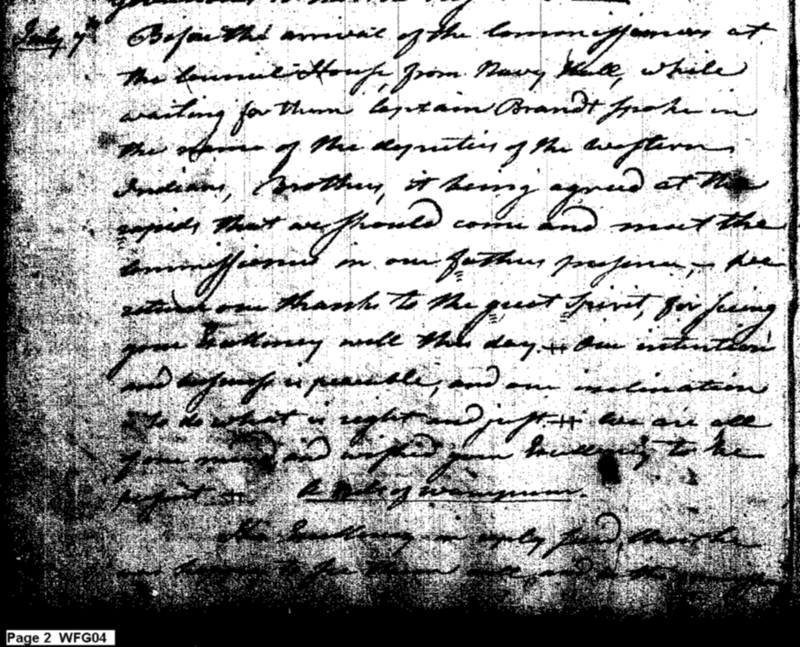 July 7th Before the arrival of the Commissioners at
the Council House, from Navy Hall, while
waiting for them Captain Brandt spoke in
the name of the deputies of the western
Indians, Brothers, it being agreed at the
rapids that we should come and meet the
Commissioners in our fathers presence, - We
return our thanks to the great Spirit, for seeing
your Excellency well this day. Our intention
and business is peaceable, and our inclination
to do what is right and just. We are all
your and wished your Excellency to be
present. A Belt of wampum.
His Excellency in reply said, that he
was happy to see them well, and as the
Page 2 WFG04